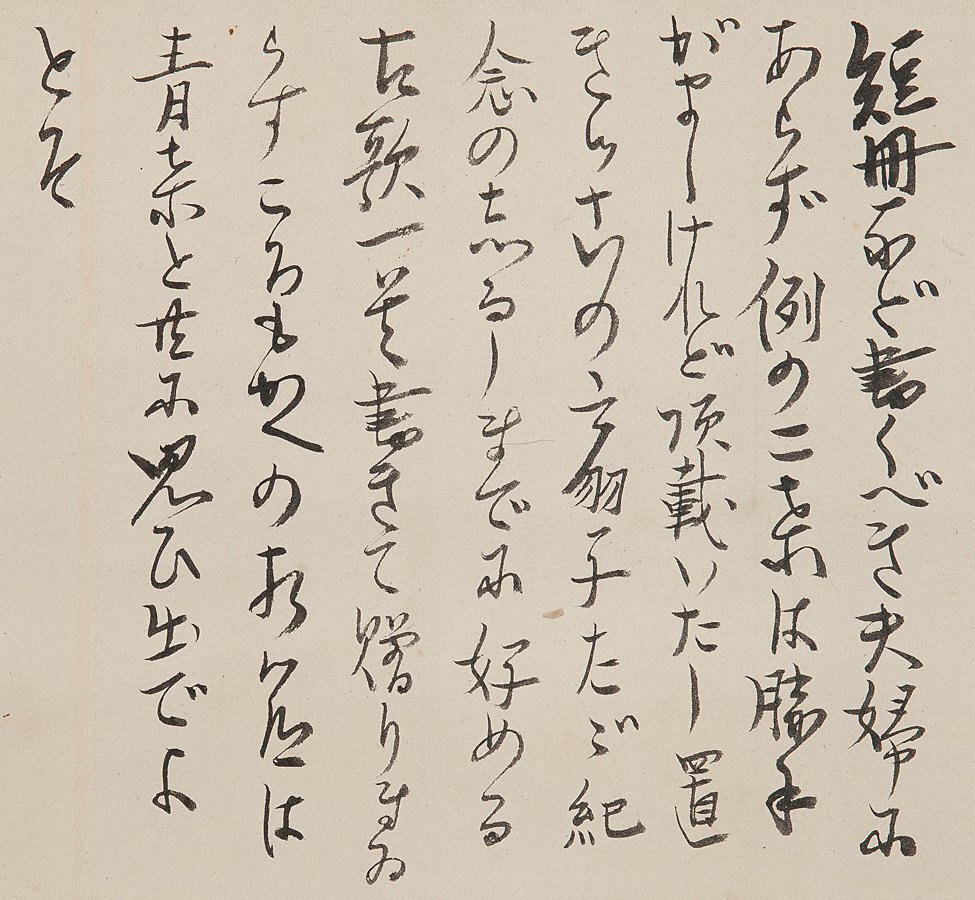 短冊など書くべき夫婦に
あらず例の二葉は勝手
がましけれど頂載いたし置
きつ の 扇子たゞ紀
念の志るしまでに好める
古歌一首書きて贈りまゐ
らすころもかへの折には
青葉と共に思ひ出でよ
とぞ